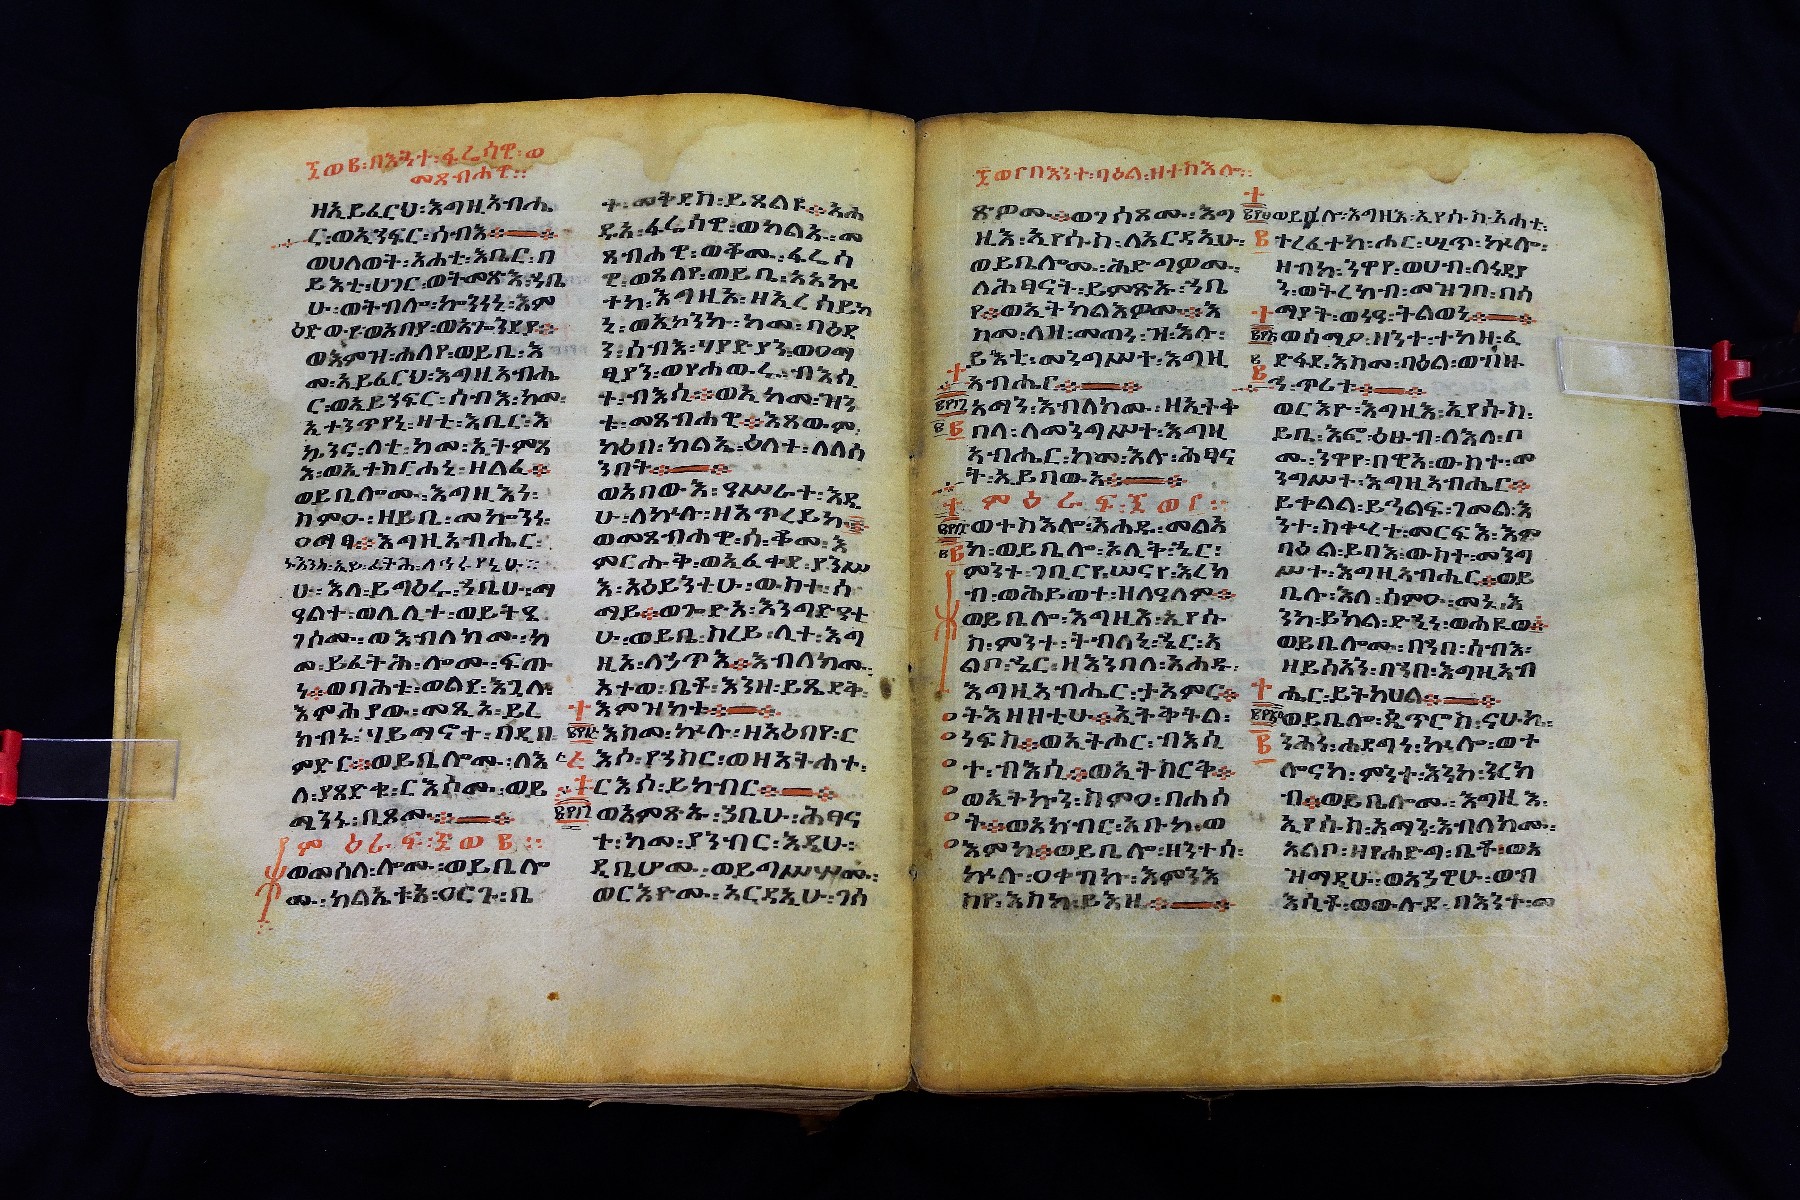 ፷ወ፪፡በእንተ፡ፋሬሳዊ፡ወ
መጸብሐዊ፡፡
ዘኢይፈርህ፡እግዚአብሔ
ር፡ወኢኀፍር፡ሰብእ
ወሀለወት፡አሐቲ፡እቤር፡በ
ይእቲ፡ሀገር፡ወትመጽእ፡ኀቤ
ሁ፡ወትብሎ፡ኰንነኒ፡እም
ዕድውየ፡ወአበየ፡ወአጐንደየ
ወእምዝ፡ሐለየ፡ወይቤ፡እ
መ፡ኢይፈርህ፡እግዚአብሔ
ር፡ወኢይኀፍር፡ሰብእ፡ከመ፡
ኢተንጥየኒ፡ዛቲ፡እቤር፡እ
ኴንና፡ላቲ፡ከመ፡ኢትምጻ
እ፡ወኢተከርሐኒ፡ዘልፈ
ወይቤሎሙ፡እግዚእነ፡
ስምዑ፡ዘይቤ፡መኰንነ፡
ዐመፃ፡እግዚአብሔር፡
ሁ፡እለ፡ይግዕሩ፡ኀቤሁ፡መ
ዓልተ፡ወሌሊተ፡ወይትዔ
ገሶሙ፡ወእብለክሙ፡ከ
መ፡ይፈትሕ፡ሎሙ፡ፍጡ
ነ፡ወባሕቱ፡ወልደ፡እጓለ፡
እምሕያው፡መጺኦ፡ይረ
ክብኑ፡ሃይማኖተ፡በዲበ
ምድር፡ወይቤሎሙ፡ለእ
ለ፡ያጸድቁ፡ርእሶሙ፡ወይ
ሜንኑ፡ቢጾሙ
ምዕራፍ፡፷ወ፪፡፡
ወመሰለ፡ሎሙ፡ወይቤሎ
ሙ፡ክልኤቱ፡ዐርጉ፡ቤ
ተ፡መቅደስ፡ይጸልዩ፡አሐ
ዱ፡ፈሬሳዊ፡ወካልኡ፡መ
ጸብሐዊ፡ወቆመ፡ፈሬሳ
ዊ፡ወጸለየ፡ወይቤ፡አአኵ
ተከ፡እግዚእ፡ዘእረሰይከ
ኒ፡ወኢኮንኩ፡ከመ፡በዕደ
ን፡ሰብእ፡ሃያድያን፡ወዐማ
ፂያን፡ወየሐውሩ፡ብእሲ
ተ፡ብእሲ፡ወኢከመ፡ዝን
ቱ፡መጸብሐዊ፡እጸውም፡
ክዕበ፡ክልኤ፡ዕለተ፡ለለሰ
ንበት
ወአበውእ፡ዓሥራተ፡እዴ
ሁ፡ለኵሉ፡ዘአጥረይኩ
ወመጸብሐዊ፡ሰ፡ቆመ፡እ
ምርሑቅ፡ወኢፈቀደ፡ያንሥ
እ፡አዕይንቲሁ፡ውስተ፡ሰ
ማይ፡ወጐድአ፡እንግድዓ
ሁ፡ወይቤ፡ስረይ፡ሊተ፡እግ
ዚኦ፡ለኃጥእ፡እብለክሙ፡
አተወ፡ቤቶ፡እንዘ፡ይጼደቅ፡
እምዝክቱ
እስመ፡ኵሉ፡ዘአዕበየ፡ር
እሶ፡የኀስር፡ወዘአትሐተ፡
ርእሶ፡ይከብር
ወአምጽኡ፡ኀቤሁ፡ሕፃና
ተ፡ከመ፡ያንብር፡እዴሁ፡
ዲቤሆሙ፡ወይግሥሦሙ፡
ወርእዮሙ፡አርዳኢሁ፡ገሠ
፷ወ፫በእንተ፡ባዕል፡ዘተስእሎ፡፡
ጽዎሙ፡ወገሠጾሙ፡እግ
ዚእ፡ኢየሱስ፡ለአርዳኢሁ፡
ወይቤሎሙ፡ሕድግዎሙ፡
ለሕፃናት፡ይምጽኡ፡ኀቤ
የ፡ወኢትክልእዎሙ፡እ
ስመ፡ለዘ፡መጠነ፡ዝ፡እሉ፡
ይእቲ፡መንግሥተ፡እግዚ
አብሔር
አማን፡እብለክሙ፡ዘኢትቀ
በላ፡ለመንግሥተ፡እግዚ
አብሔር፡ከመ፡እሉ፡ሕፃና
ት፡ኢይበውኦ
ምዕራፍ፡፷ወ፫፡፡
ወተስእሎ፡አሐዱ፡መልአ
ክ፡ወይቤሎ፡ኦሊቅ፡ኄር፡
ምንተ፡ገቢርየ፡ሠናየ፡እረክ
ብ፡ወሕይወተ፡ዘለዓለም
ወይቤሎ፡እግዚእ፡ኢየሱ
ስ፡ምንተ፡ትብለኒ፡ኄር፡አ
ልቦ፡ኄር፡ዘእንበለ፡አሐዱ፡
እግዚአብሔር፡ታአምር
ትእዛዛቲሁ፡ኢትቅትል፡
ነፍሰ፡ወኢትሑር፡ብእሲ
ተ፡ብእሲ፡ወኢትስርቅ
ወኢትኩን፡ስምዐ፡በሐሰ
ት፡ወአክብር፡አቡከ፡ወ
እመከ፡ወይቤሎ፡ዘንተሰ፡
ኵሎ፡ዐቀብኩ፡እምንእ
ስየ፡እስከ፡ይእዜ
ወይቤሎ፡እግዚእ፡ኢየሱስ፡አሐቲ፡
ተረፈተከ፡ሑር፡ሢጥ፡ኵሎ፡
ዘብከ፡ንዋየ፡ወሀብ፡ለነዳያ
ን፡ወትረክብ፡መዝገበ፡በሰ
ማያት፡ወነዓ፡ትልወኒ
ወሰሚዖ፡ዘንተ፡ተከዘ፡ፈ
ድፋደ፡እስመ፡ባዕል፡ወብዙ
ኅ፡ጥሪቱ
ወርእዮ፡እግዚእ፡ኢየሱስ፡
ይቤ፡እፎ፡ዕፁብ፡ለእለ፡ቦ
ሙ፡ንዋየ፡በዊአ፡ውስተ፡መ
ንግሥተ፡እግዚአብሔር
ይቀልል፡ይኅልፍ፡ገመል፡እ
ንተ፡ስቍረተ፡መርፍእ፡እም
ባዕል፡ይበእ፡ውስተ፡መንግ
ሥተ፡እግዚአብሔር፡ወይ
ቤሉ፡እለ፡ሰምዑ፡መኑ፡እ
ንከ፡ይክል፡ድኂነ፡ወሐዪወ
ወይቤሎሙ፡በኀበ፡ሰብእ፡
ዘይሰአን፡በኀበ፡እግዚአብ
ሔር፡ይትከሀል
ወይቤሎ፡ጴጥሮስ፡ናሁኬ፡
ንሕነ፡ሐደግነ፡ኵሎ፡ወተ
ሎናከ፡ምንተ፡እንከ፡ንረክ
ብ፡ወይቤሎሙ፡እግዚእ፡
ኢየሱስ፡አማን፡እብለክሙ፡
አልቦ፡ዘየሐድግ፡ቤቶ፡ወአ
ዝማዲሁ፡ወአኀዊሁ፡ወብ
እሲቶ፡ወውሉደ፡በእንተ፡መ